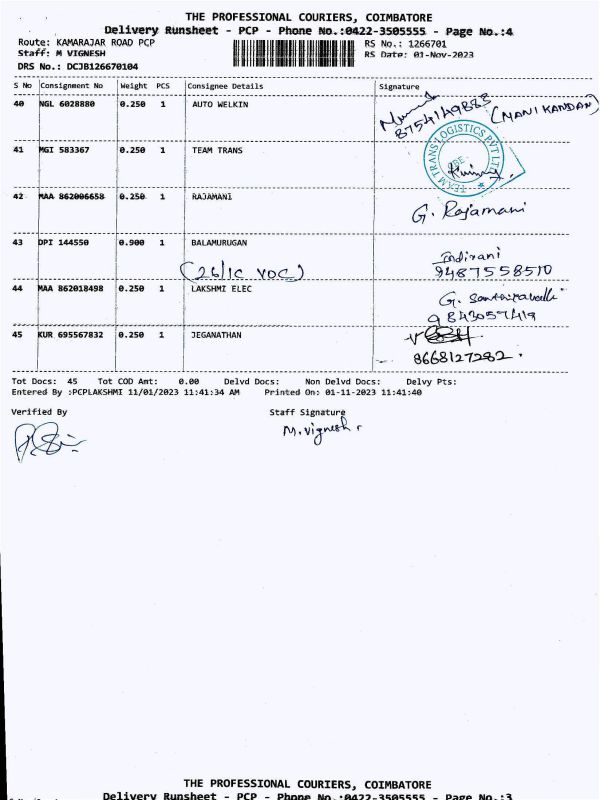 THE PROFESSIONAL COURIERS, COIMBATORE
Delivery Runsheet - PCP - Phone No.:0422-3505555 - Page No.:4
Route: KAMARAJAR ROAD PCP RS No.: 1266701
Staff: M VIGNESH RS Date: 01-Nov-2023
DRS No.: DCJB126670104
S No Consignment No Weight PCS Consignee Details Signature
40 NGL 6028880 0.250 1 AUTO WELKIN
8754149883 (MANIKANDAN)
41 MGI 583367 0.250 1 TEAM TRANS
TEAM TRANS LOGISTICS PVT LTD
42 MAA 862006658 0.250 1 RAJAMANI
G. Rajamani
43 DPI 144550 0.900 1 BALAMURUGAN
Indirani
(26/1C VOC) 9487558510
44 MAA 862018498 0.250 1 LAKSHMI ELEC
G.
9843057419
45 KUR 695567832 0.250 1 JEGANATHAN
8668127282.
Tot Docs: 45 Tot COD Amt: 0.00 Delvd Docs: Non Delvd Docs: Delvy Pts:
Entered By :PCPLAKSHMI 11/01/2023 11:41:34 AM Printed On: 01-11-2023 11:41:40
Verified By Staff Signature
M. Vignesh
THE PROFESSIONAL COURIERS, COIMBATORE
Delivery Runsheet - PCP - Phone No.:0422-3505555 - Page No.:3